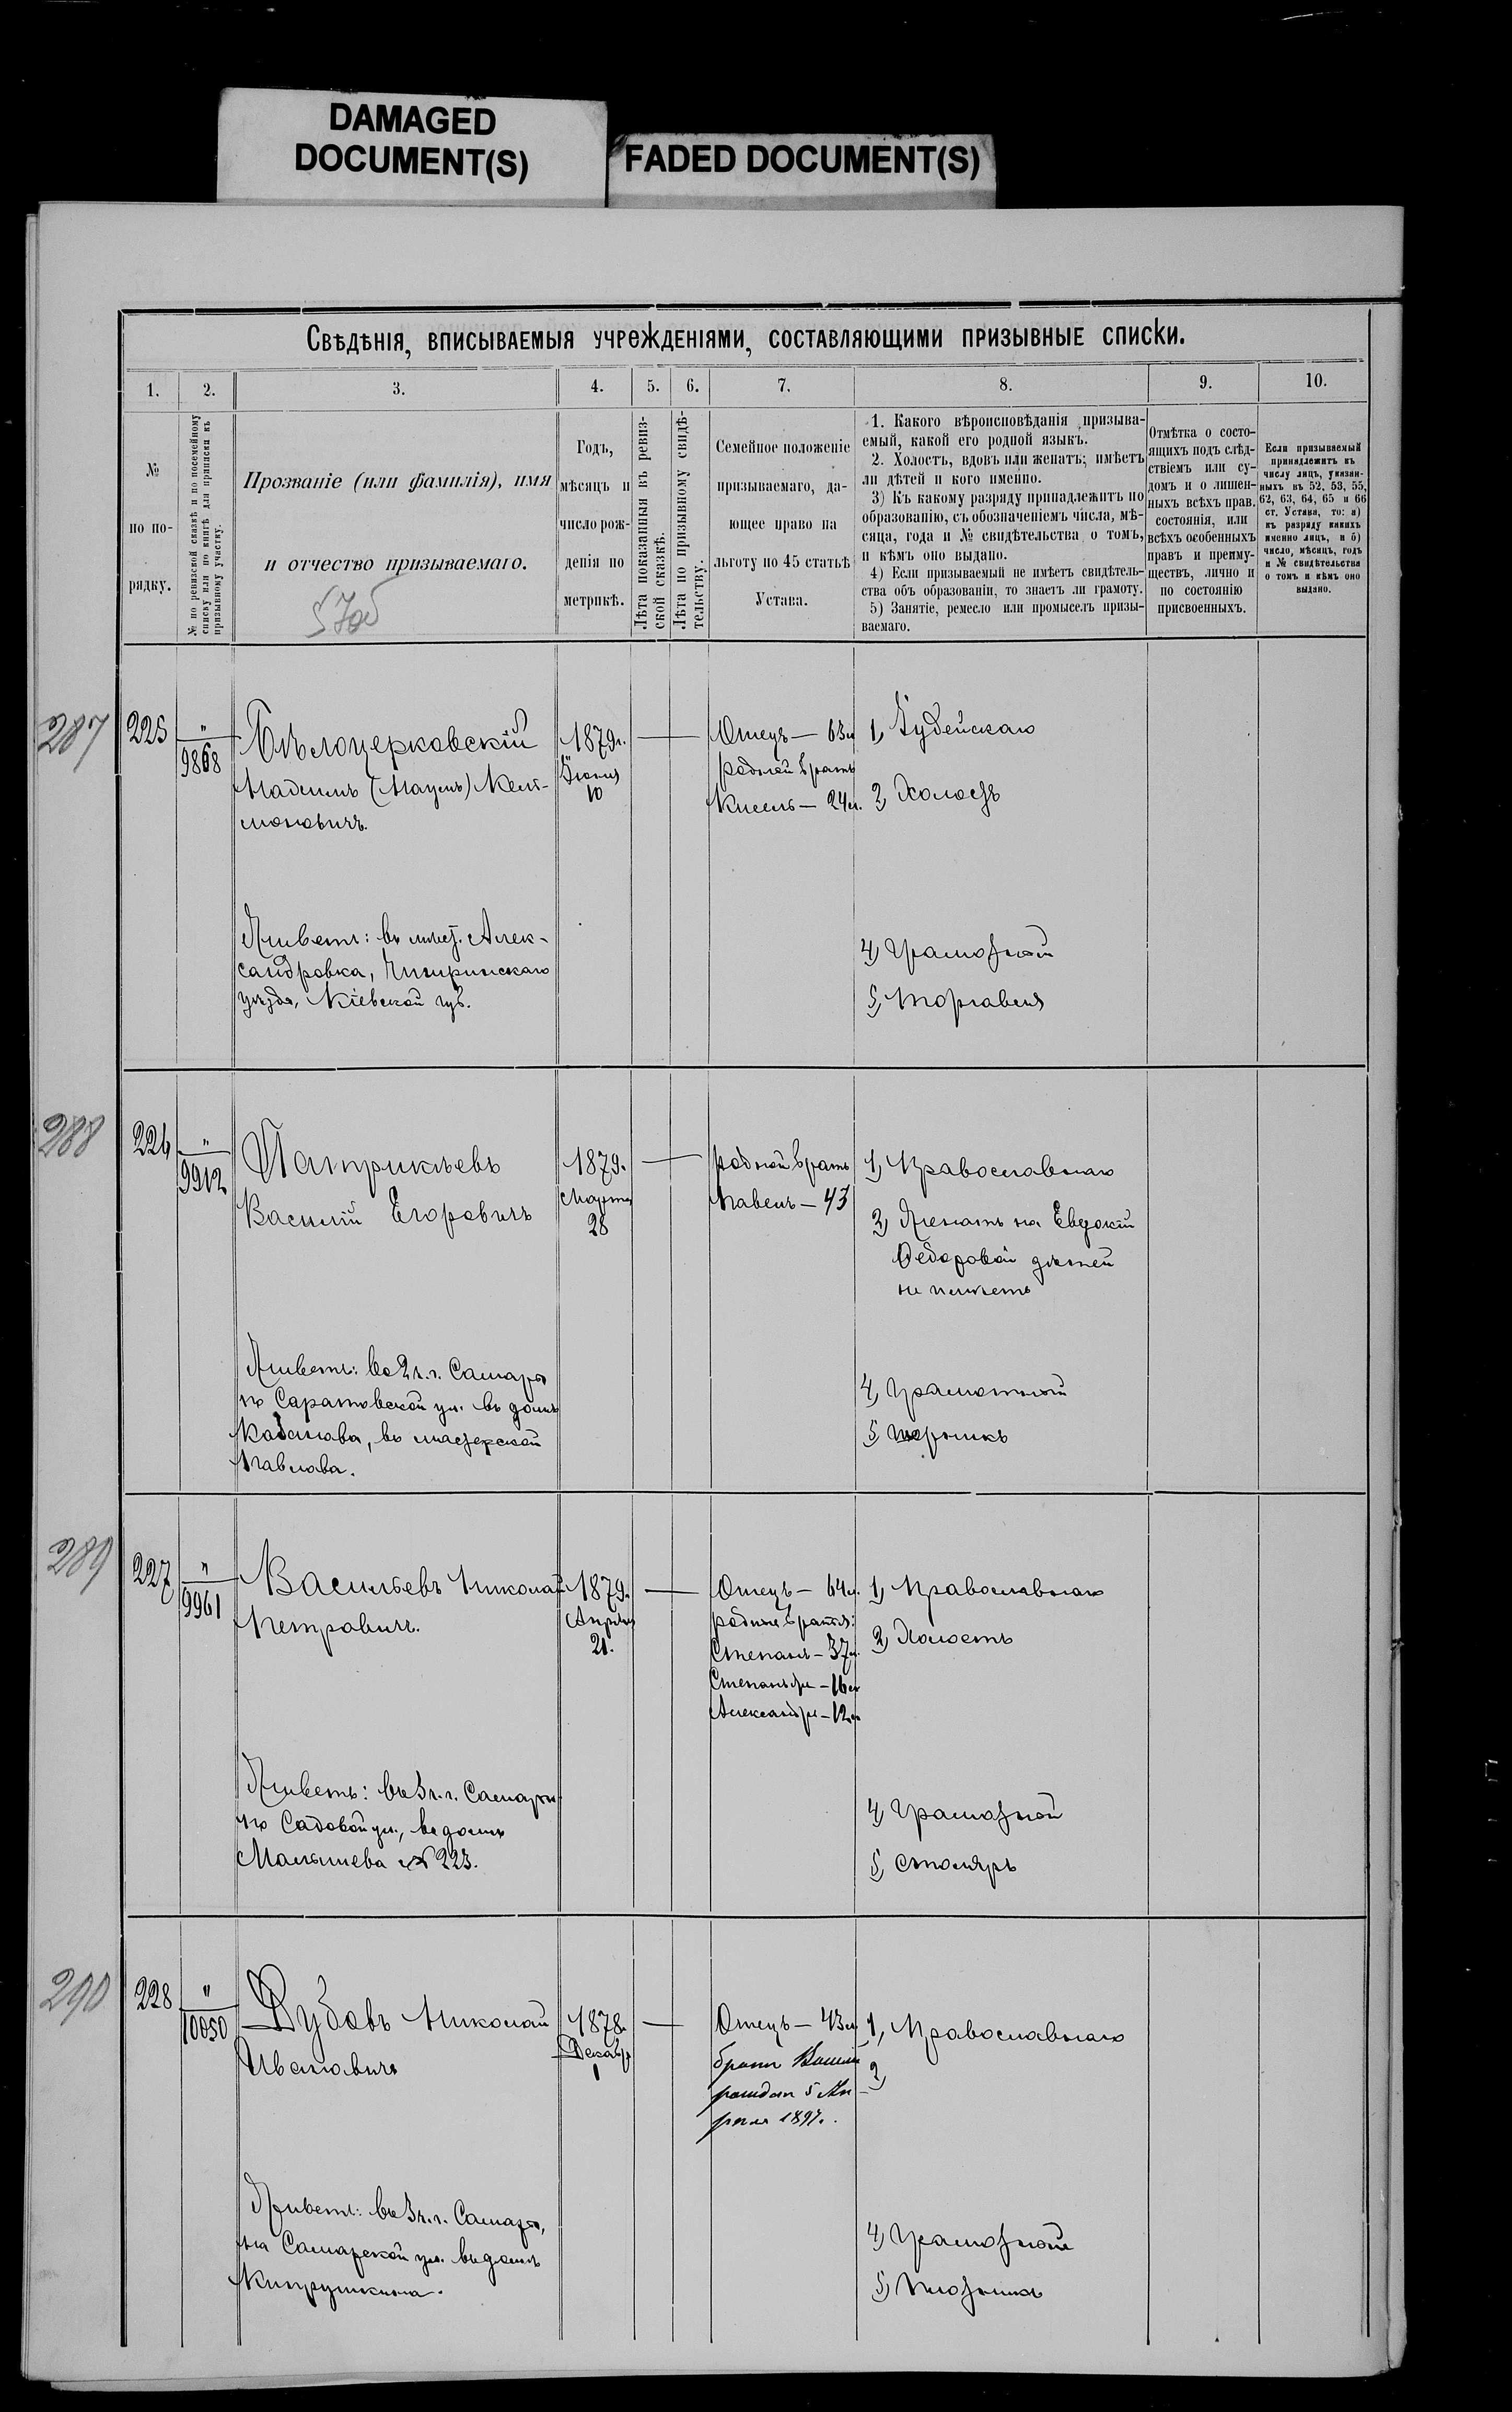 DAMAGED
DOCUMENT(S)
FADED DOCUMENT(S)
Свѣдѣнія, вписываемыя учрежденіями, составляющими призывные списки.
1. 2. 3. 4. 5. 6. 7. 8. 9. 10.
№
по по-
рядку.
№ по ревизской сказкѣ и по посемейному
списку или по книгѣ для приписки къ
призывному участку.
Прозваніе (или фамилія), имя
и отчество призываемаго.
Годъ,
мѣсяцъ и
число рож-
денія по
метрикѣ.
Лѣта показанныя въ ревиз-
ской сказкѣ.
Лѣта по призывному свидѣ-
тельству.
Семейное положеніе
призываемаго, да-
ющее право на
льготу по 45 статьѣ
Устава.
1. Какого вѣроисповѣданія призыва-
емый, какой его родной языкъ.
2. Холостъ, вдовъ или женатъ; имѣетъ
ли дѣтей и кого именно.
3) Къ какому разряду принадлежитъ по
образованію, съ обозначеніемъ числа, мѣ-
сяца, года и № свидѣтельства о томъ,
и кѣмъ оно выдано.
4) Если призываемый не имѣетъ свидѣтель-
ства объ образованіи, то знаетъ ли грамоту.
5) Занятіе, ремесло или промыселъ призы-
ваемаго.
Отмѣтка о состо-
ящихъ подъ слѣд-
ствіемъ или су-
домъ и о лишен-
ныхъ всѣхъ прав.
состоянія, или
всѣхъ особенныхъ
правъ и преиму-
ществъ, лично и
по состоянію
присвоенныхъ.
Если призываемый
принадлежитъ къ
числу лицъ, указан-
ныхъ въ 52, 53, 55,
62, 63, 64, 65 и 66
ст. Устава, то: а)
къ разряду какихъ
именно лицъ, и б)
число, мѣсяцъ, годъ
и № свидѣтельства
о томъ и кѣмъ оно
выдано.
287
225
"
9868
Бѣлоцерковскій
1879г.
Іюня
10
Отецъ — 63л
родной братъ
24л.
1, Іудейскаго
2, Холостъ
Живетъ: въ мѣст. Алек-
сандровка, Чигиринскаго
уѣзда, Кіевской губ.
4, Грамотной
5, Торговля
288
226
"
9912
Патрикѣевъ
Василій Егоровичъ
1879.
Марта
28
родной братъ
Павелъ — 43
1, Православнаго
2, Женатъ на Евдокіи
Федоровой дѣтей
не имѣетъ
Живетъ: во 2 ч. г. Самары
по Саратовской ул. въ домѣ
въ мастерской
Павлова.
4, Грамотный
5,
289
227
"
9961
Васильевъ Николай
Петровичъ.
1879.
Апрѣля
21.
Отецъ — 64л.
родные братья:
Степанъ — 37л.
16л
Александръ — 12л
1, Православнаго
2, Холостъ
Живетъ: въ 3 ч. г. Самары
по Садовой ул., въ домѣ
Малышева № 223.
4, Грамотной
5, Столяръ
290
228
"
10050
Дубовъ Николай
Ивановичъ
1878.
Декабр
1
Отецъ — 43л
братъ
рожден 5 Ап
рѣля 1897.
1, Православнаго
2,
Живетъ: въ 3 ч. г. Самары,
на Самарской ул. въ домѣ
4, Грамотной
5, Плотникъ